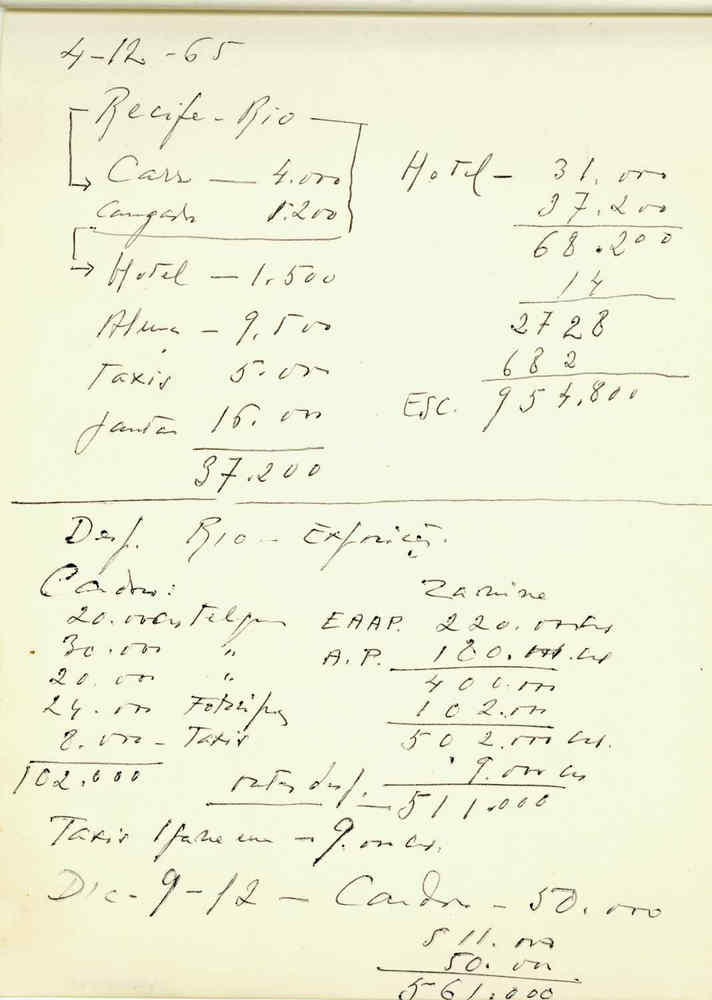 4-12-65
Recife - Rio
Carr — 4.000
1.200
Hotel — 1.500
9.500
Taxis 5.000
Jantar 16.000
37.200
Hotel — 31.000
37.200
68.200
14
2728
682
Esc. 954.800
Desp. Rio — Exposição.
20.000
30.000 "
20.000 "
24.000
8.000 — Taxis
102.000
Zanine
EAAP. 220.000
A.P. 180.000
400.000
102.000
502.000
9.000
outras desp. — 511.000
Taxis — 9.000
Dia - 9-12 — 50.000
511.000
50.000
561.000